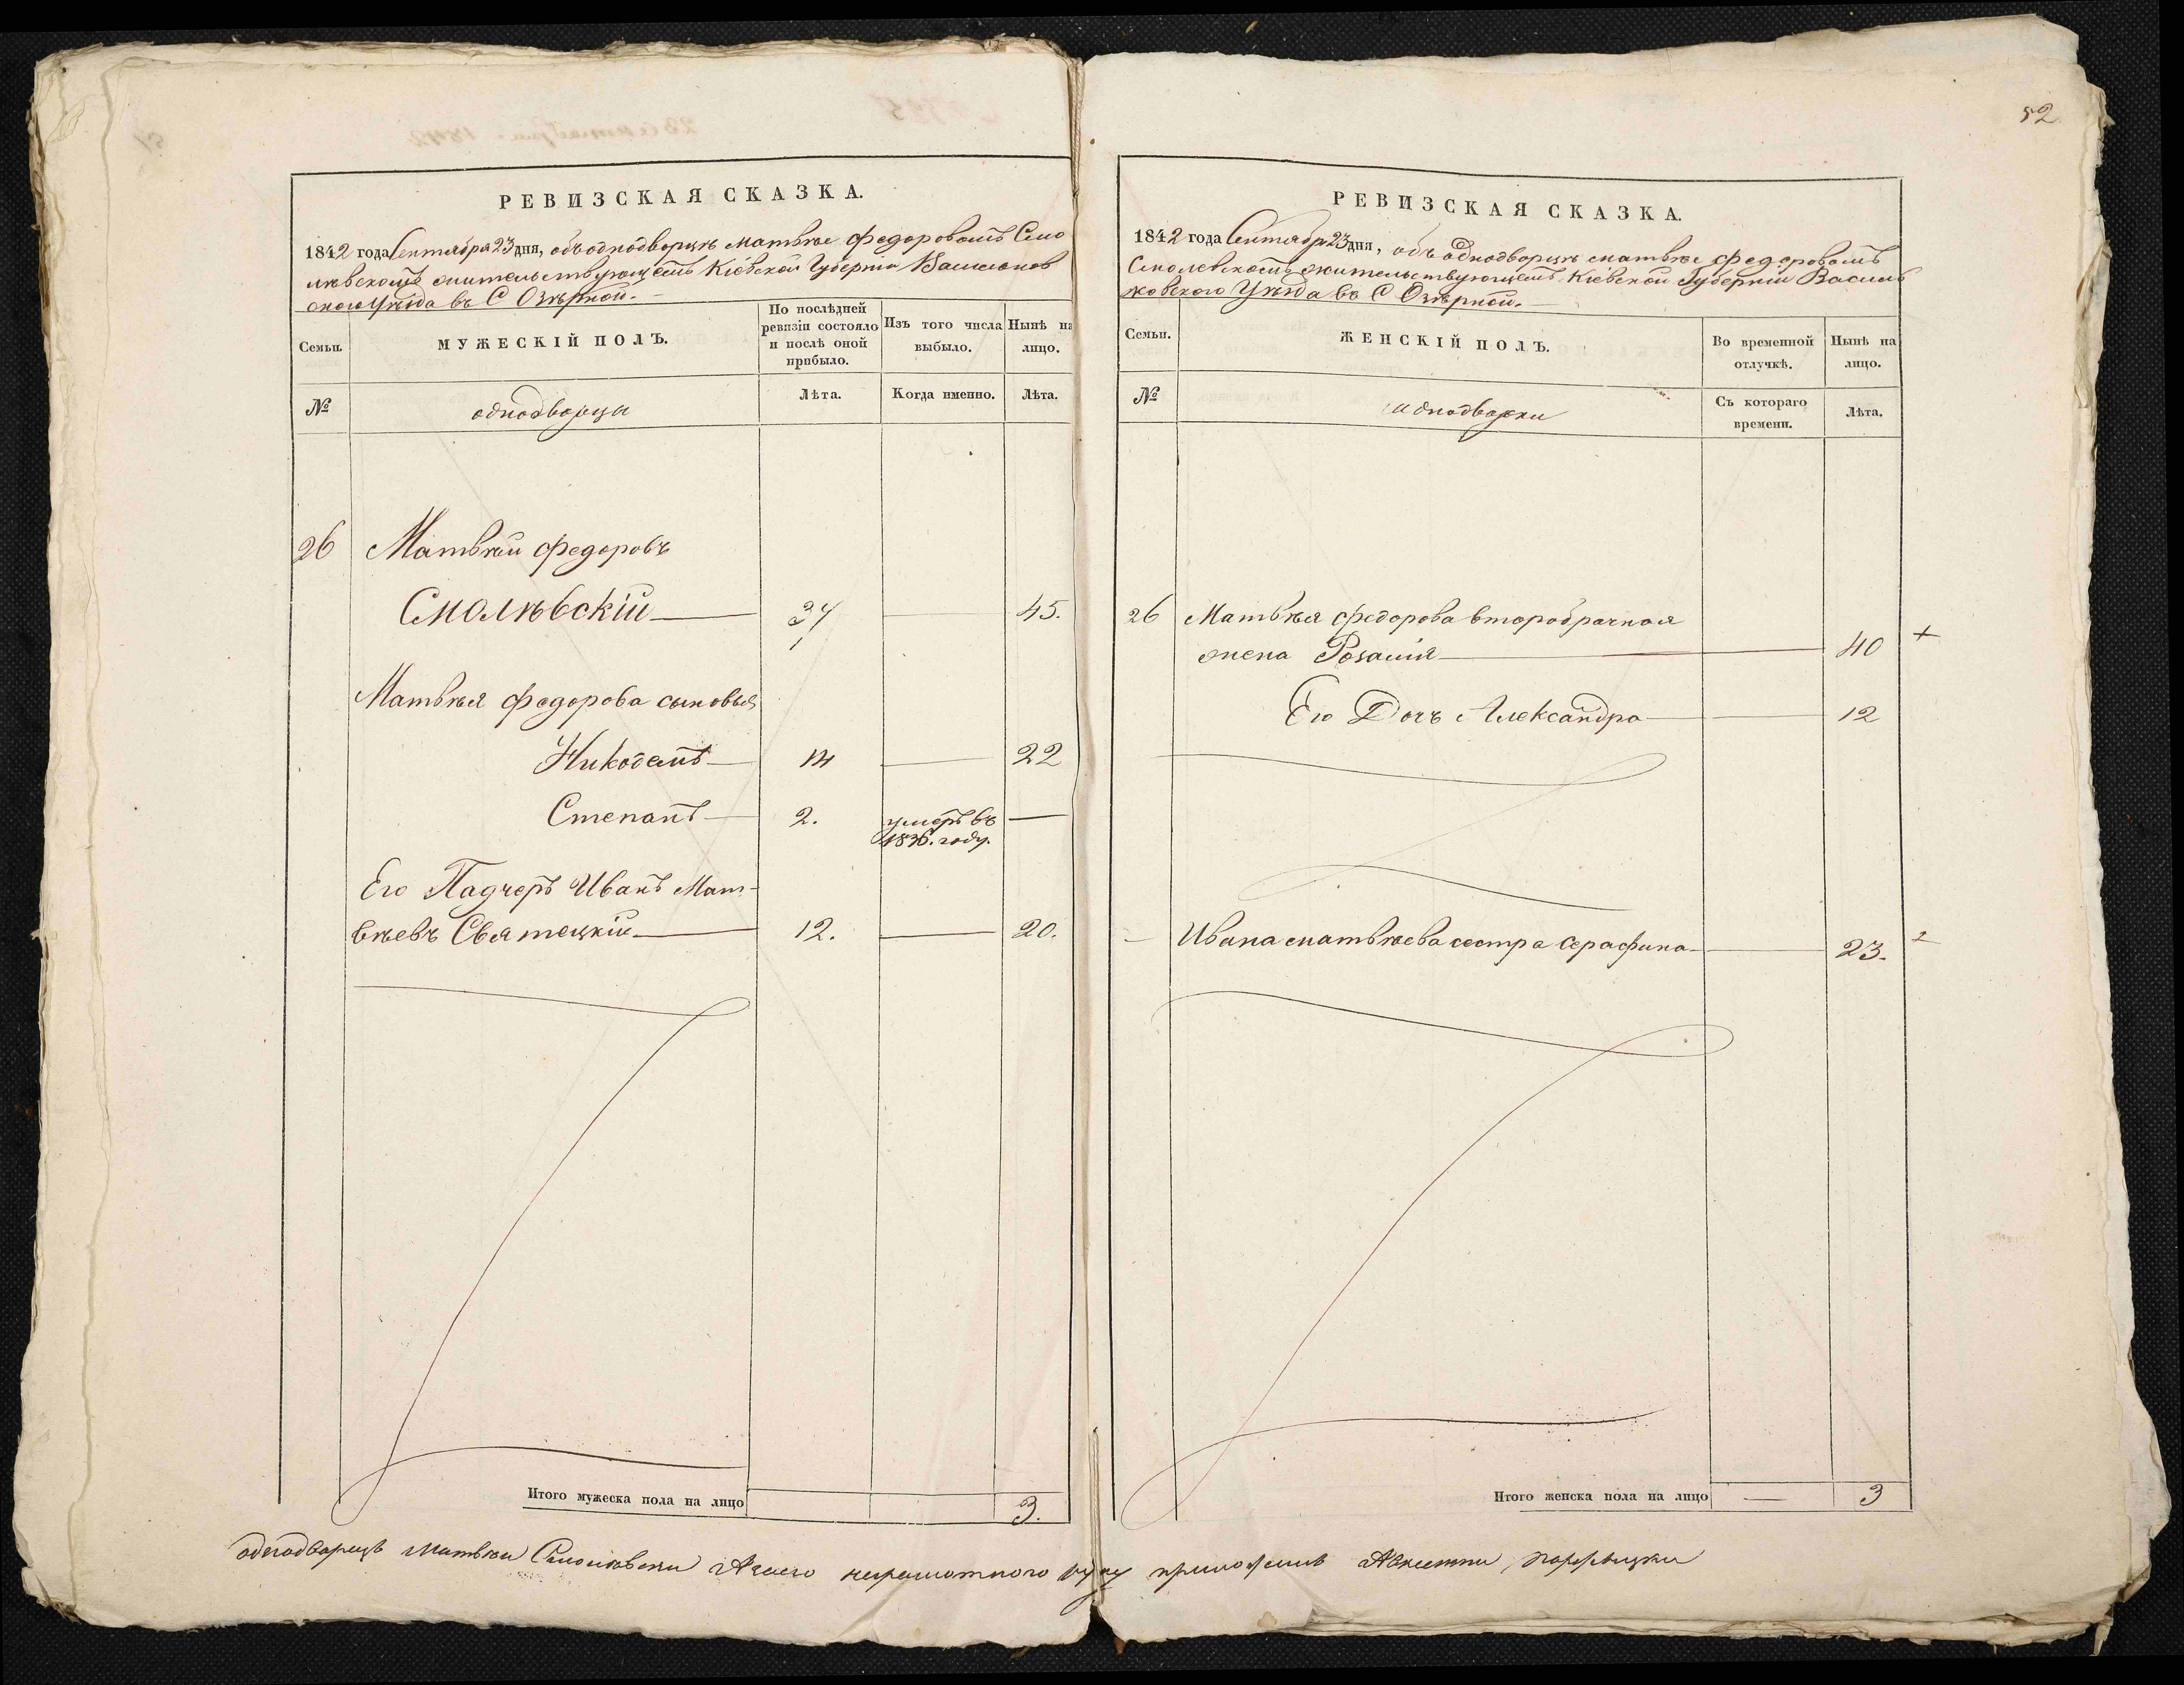 52
РЕВИЗСКАЯ СКАЗКА.
1842 года Сентября 23 дня, объ однодворцѣ Матвѣе Федоровомъ Смо
лѣвскомъ жительствующемъ Кіевской Губерніи Васильков
скаго Уѣзда въ С Озѣрной.
Семьи.
МУЖЕСКІЙ ПОЛЪ.
По послѣдней
ревизіи состояло
и послѣ оной
прибыло.
Изъ того числа
выбыло.
Нынѣ на
лицо.
№
однодворцы
Лѣта.
Когда именно.
Лѣта.
26 Матвѣй Федоровъ
Смолѣвскій 34 45.
Матвѣя Федорова сыновья
Никодемъ 14 22
Степанъ 2. умеръ въ
1836. году.
Его Падчеръ Иванъ Мат-
вѣевъ Святецкій 12. 20.
Итого мужеска пола на лицо 3.
РЕВИЗСКАЯ СКАЗКА.
1842 года Сентября 23 дня, объ однодворцѣ Матвѣе Федоровомъ
Смолевскомъ жительствующемъ Кіевской Губерніи Василь
ковского Уѣзда въ С Озѣрной.
Семьи.
ЖЕНСКІЙ ПОЛЪ.
Во временной
отлучкѣ.
Нынѣ на
лицо.
№
однодворки
Съ котораго
времени.
Лѣта.
26 Матвѣя Федорова второбрачная
жена Розалія 40 +
Его Дочъ Александра 12
Ивана Матвѣева сестра Серафина 23.
Итого женска пола на лицо — 3
однодворецъ Матвѣи Смолѣвски Азаего неграмотного руку приложилъ